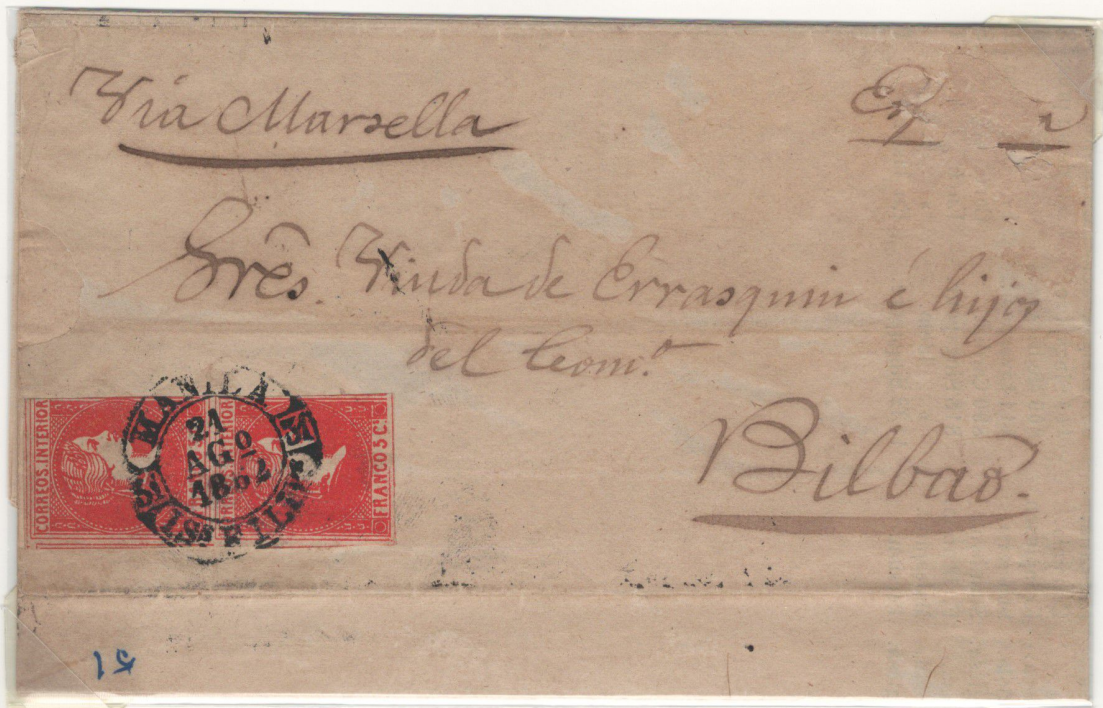 Via Marsella
Sres. Viuda de Errasquin é hijos
del Com.º
Bilbao.
CORREOS. INTERIOR
FRANCO 5 Cs
MANILA
21
AGº
1862
ISLAS FILIPINAS
51